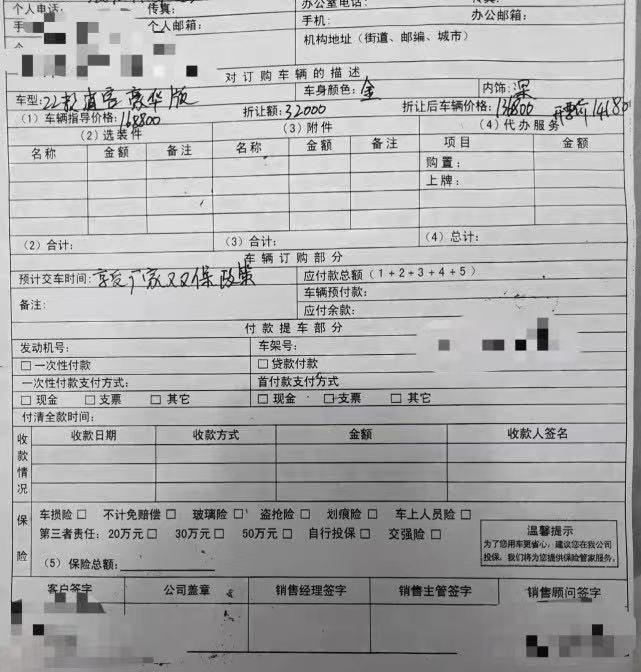 个人电话： 传真： 办公室电话： 传真：
手 个人邮箱： 手机： 办公邮箱：
机构地址（街道、邮编、城市）
对订购车辆的描述
车型：22款 豪华版 车身颜色：金 内饰：深
（1）车辆指导价格：168800 折让额：32000 折让后车辆价格：136800 开票价 141801
（2）选装件 （3）附件 （4）代办服务
名称 金额 备注 名称 金额 备注 项目 金额
购置：
上牌：
（2）合计： （3）合计： （4）总计：
车辆订购部分
预计交车时间：享受厂家双保政策 应付款总额（1+2+3+4+5）
车辆预付款：
备注： 应付余款：
付款提车部分
发动机号： 车架号：
□一次性付款 □贷款付款
一次性付款支付方式： 首付款支付方式
□现金 □支票 □其它 □现金 □支票 □其它
付清全款时间：
收款情况 收款日期 收款方式 金额 收款人签名
保险 车损险□ 不计免赔偿□ 玻璃险□ 盗抢险□ 划痕险□ 车上人员险□
第三者责任：20万元□ 30万元□ 50万元□ 自行投保□ 交强险□
（5）保险总额：
温馨提示
为了您用车更省心，建议您在我公司
投保，我们将为您提供保险管家服务。
客户签字 公司盖章 销售经理签字 销售主管签字 销售顾问签字